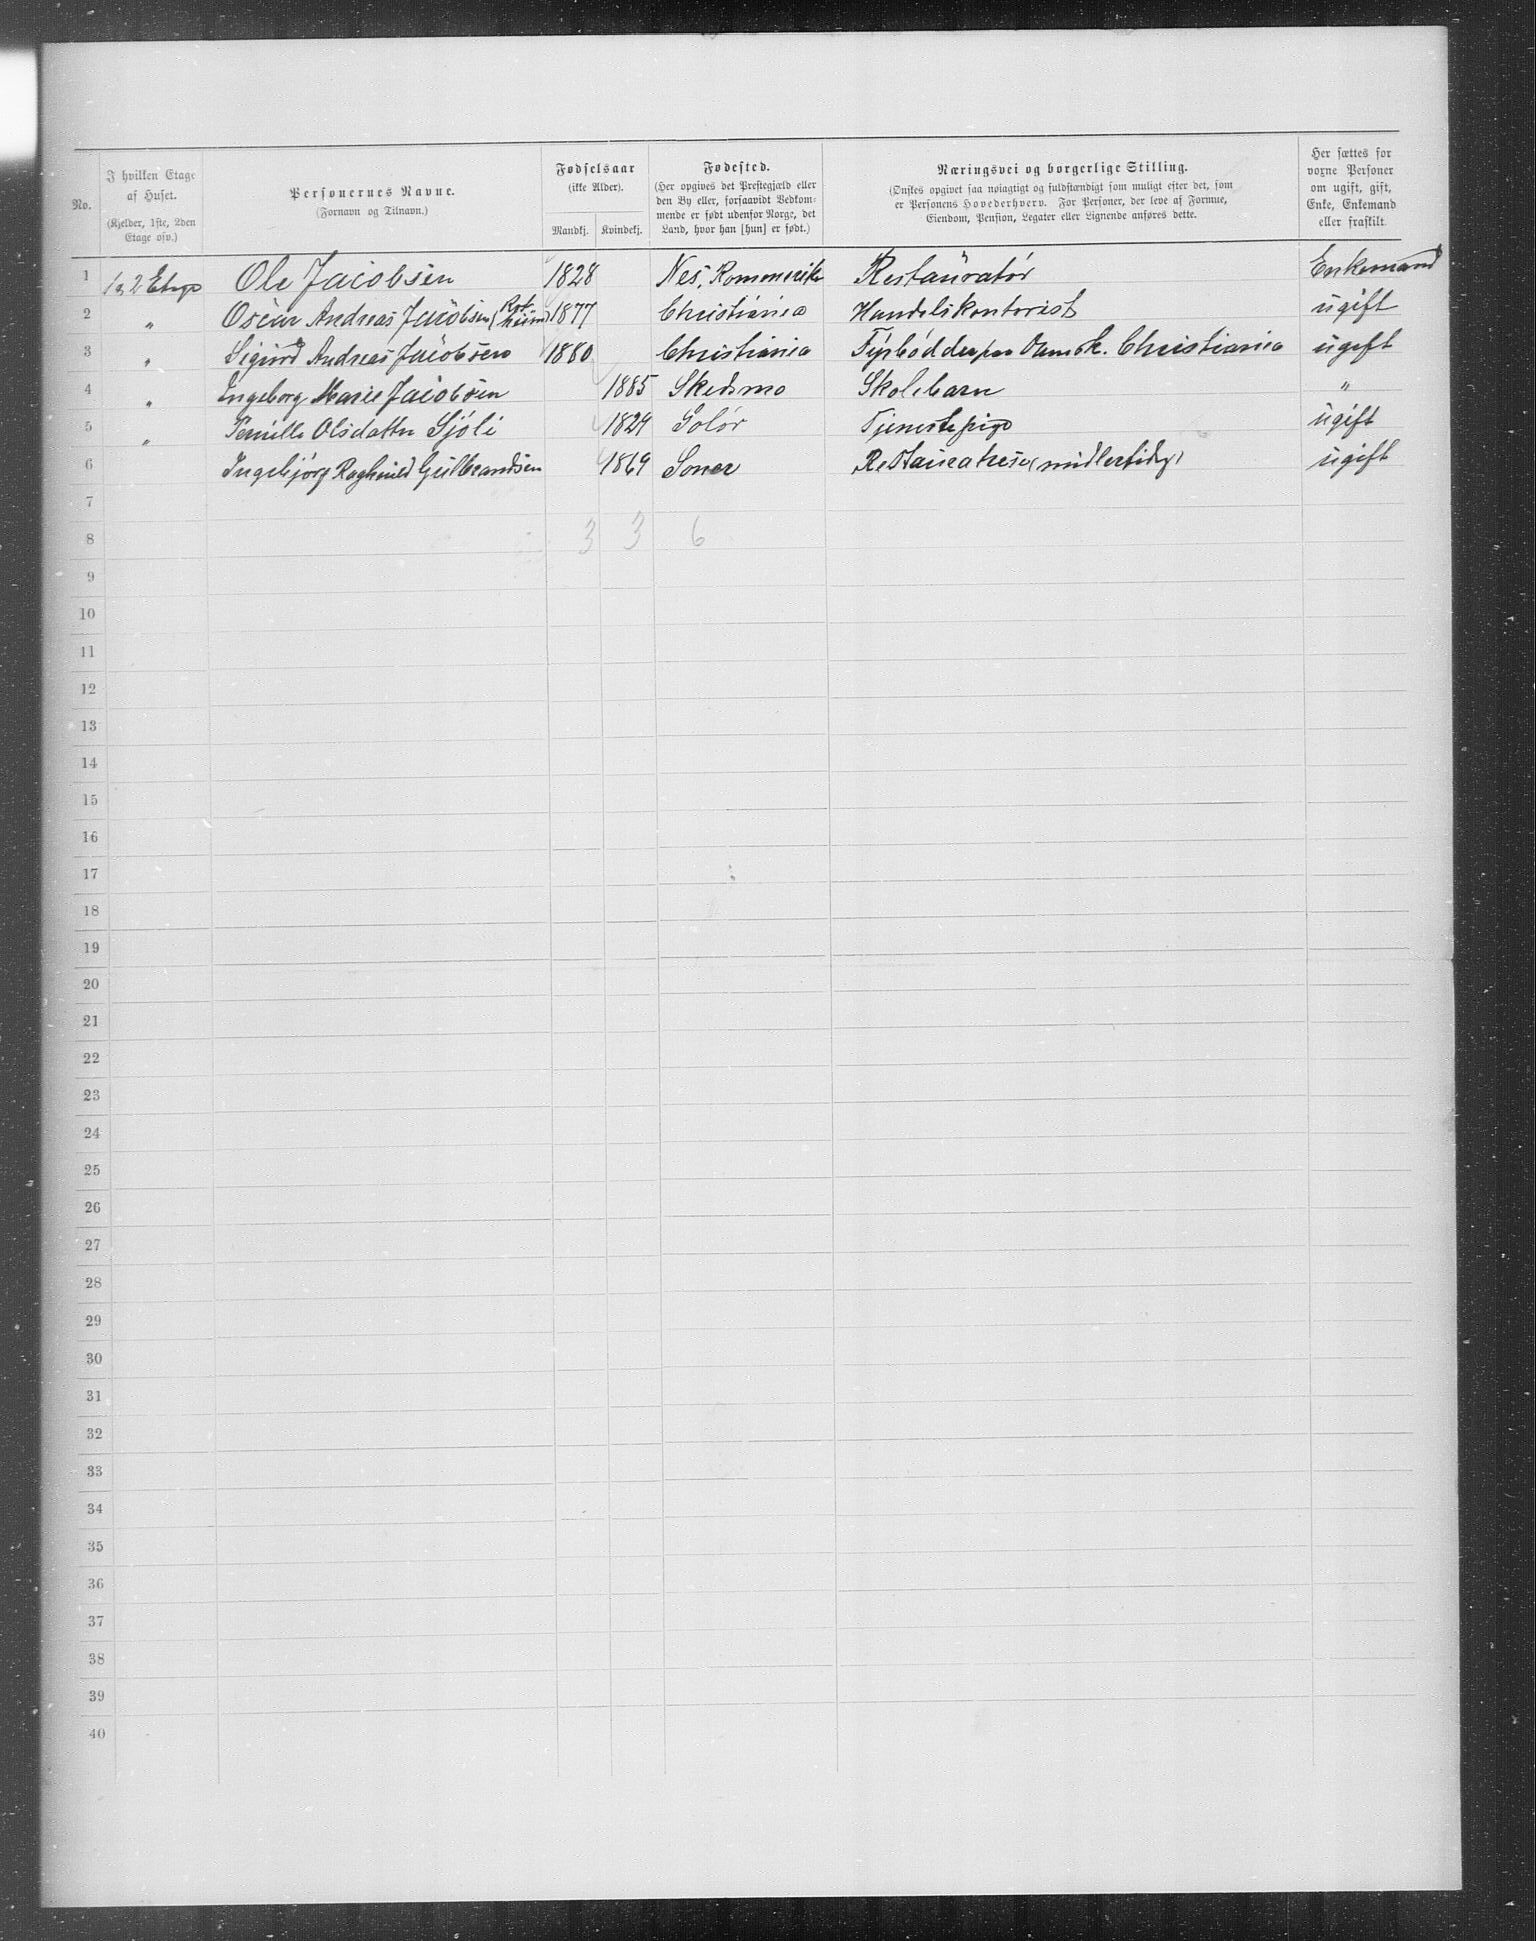 No.
I hvilken Etage af Huset.
(Kjelder, 1ste, 2den Etage osv.)
Personernes Navne.
(Fornavn og Tilnavn.)
Fødselsaar
(ikke Alder).
Mandkj. Kvindekj.
Fødested.
(Her opgives det Præstegjæld eller
den By eller, forsaavidt Vedkom-
mende er født udenfor Norge, det
Land, hvor han [hun] er født.)
Næringsvei og borgerlige Stilling.
(Ønskes opgivet saa nøiagtigt og fuldstændigt som muligt efter det, som
er Personens Hovederhverv. For Personer, der leve af Formue,
Eiendom, Pension, Legater eller Lignende anføres dette.
Her sættes for
voxne Personer
om ugift, gift,
Enke, Enkemand
eller fraskilt.
1 1 a 2 Etage Ole Jacobsen 1828 Nes, Rommerike Restauratør Enkemand
2 " Oscar Andreas Jacobsen (Rotheim) 1877 Christiania Handelskontorist ugift
3 " Sigurd Andreas Jacobsen 1880 Christiania Fyrbødder paa Damsk. Christiania ugift
4 " Ingeborg Marie Jacobsen 1885 Skedsmo Skolebarn "
5 " Pernille Olsdatter Sjøli 1829 Solør Tjenestepige ugift
6 Ingebjørg Raghnild Gulbrandsen 1869 Soner Restauratrise (midlertidig) ugift
7
8 3 3 6
9
10
11
12
13
14
15
16
17
18
19
20
21
22
23
24
25
26
27
28
29
30
31
32
33
34
35
36
37
38
39
40